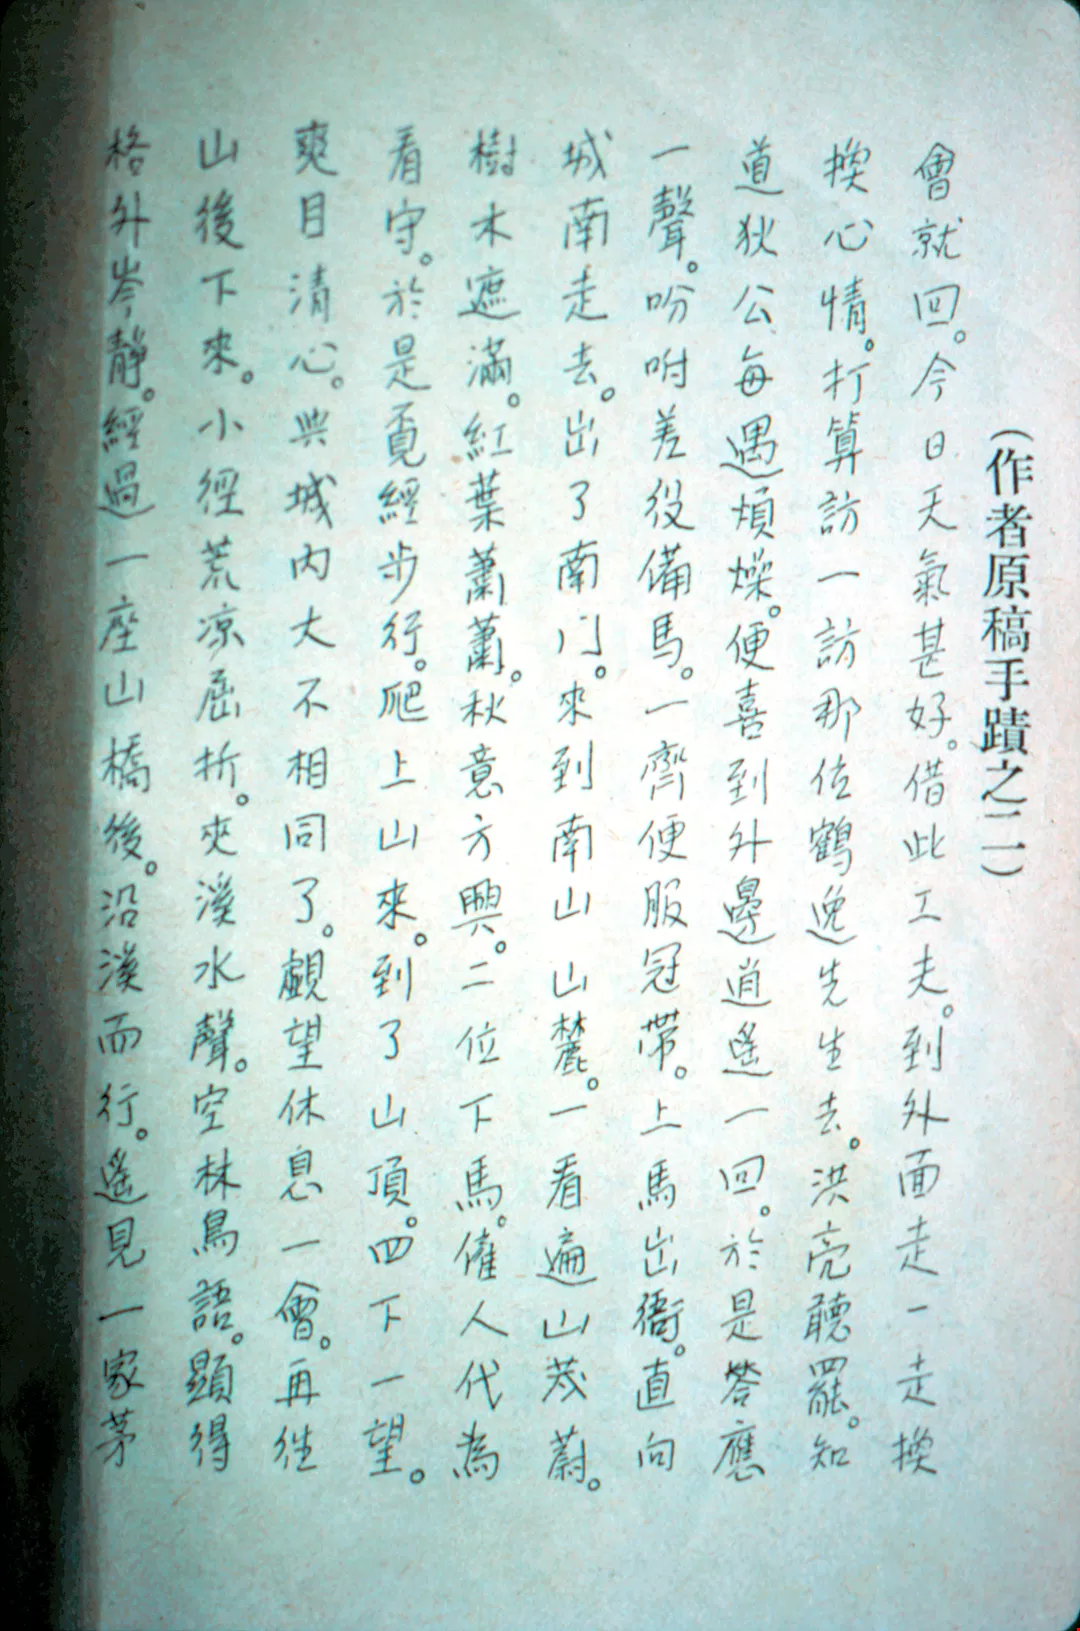 (作者原稿手蹟之二)
會就回。今日天氣甚好。借此工夫。到外面走一走換
換心情。打算訪一訪那位鶴逸先生去。洪亮聽罷。知
道狄公每遇煩燥。便喜到外邊逍遙一回。於是答應
一聲。吩咐差役備馬。一齊便服冠帶。上馬出衙。直向
城南走去。出了南门。來到南山山麓。一看遍山茂蔚。
樹木遮滿。紅葉蕭蕭。秋意方興。二位下馬。催人代為
看守。於是覓經步行。爬上山來。到了山頂。四下一望。
爽目清心。與城内大不相同了。觀望休息一會。再往
山後下來。小徑荒凉屈折。夾溪水聲。空林鳥語。顯得
格外岑靜。經過一座山橋後。沿溪而行。遙見一家茅